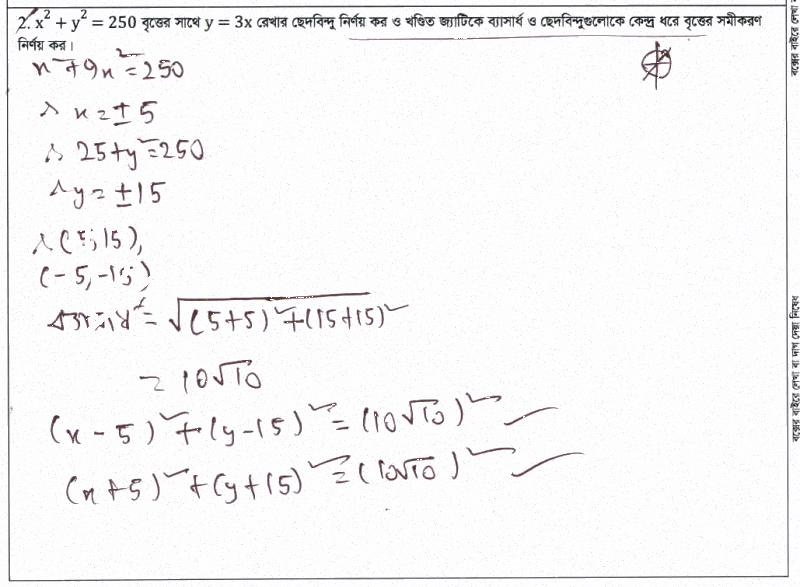 2. x² + y² = 250 বৃত্তের সাথে y = 3x রেখার ছেদবিন্দু নির্ণয় কর ও খণ্ডিত জ্যাটিকে ব্যাসার্ধ ও ছেদবিন্দুগুলোকে কেন্দ্র ধরে বৃত্তের সমীকরণ
নির্ণয় কর।
x² + 9x² = 250
∴ x = ± 5
∴ 25 + y² = 250
∴ y = ± 15
∴ (5, 15),
(-5, -15)
= √(5+5)² + (15+15)²
= 10√10
(x - 5)² + (y - 15)² = (10√10)²
(x + 5)² + (y + 15)² = (10√10)²
বক্সের বাইরে লেখা বা দাগ দেয়া নিষেধ
বক্সের বাইরে লেখা